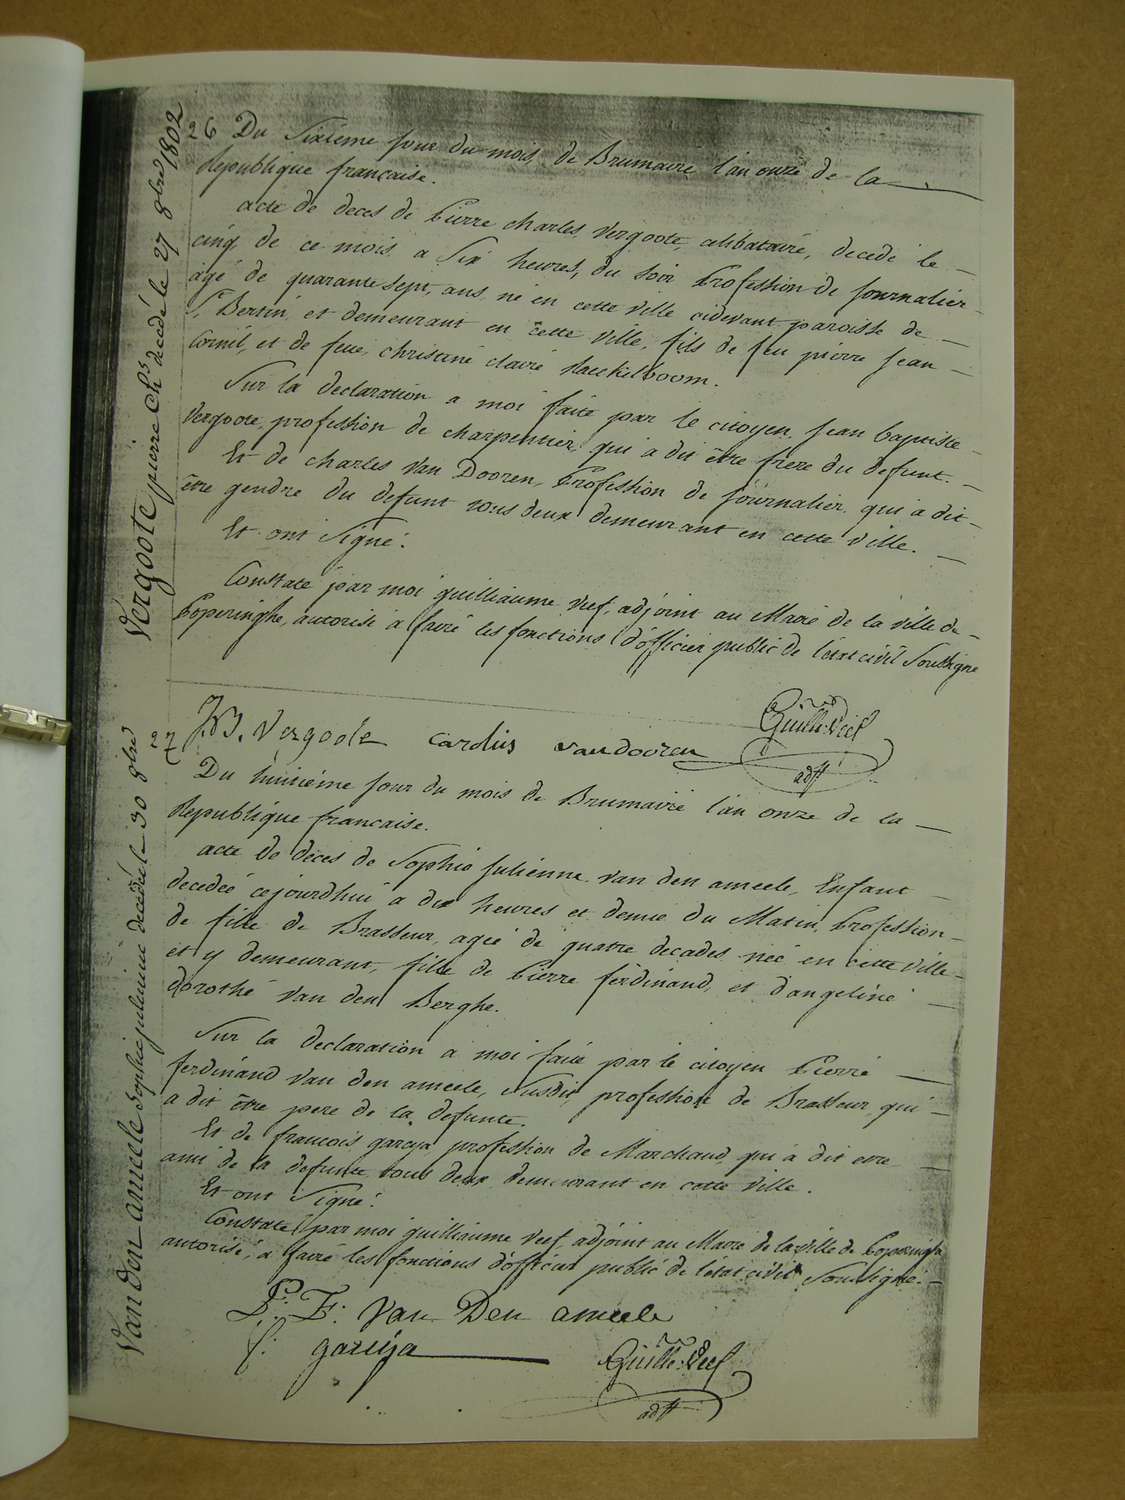 Vergoote pierre Ch.s decedé le 27 8bre 1802
26 Du Sixieme jour du mois de Brumaire l'an onze de la
Republique francaise.
acte de deces de Pierre charles Vergoote, celibataire, decede le
cinq de ce mois a Six heures, du soir Profession de journalier
agé de quarante sept, ans né en cette ville cidevant paroisse de
St Bertin, et demeurant en cette ville, fils de feu pierre jean
Cornil, et de feue, christine claire
Sur la declaration a moi faite par le citoyen jean baptiste
Vergoote, profession de charpentier, qui a dit être frere du defunt.
Et de charles Van Dooren, Profession de journalier, qui a dit
être gendre du defunt tous deux demeurant en cette ville.
Et ont Signé.
Constaté par moi guilliaume Veef, adjoint au Maire de la ville de
Poperinghe, autorisé a faire les fonctions d'officier public de l'etat civil Soussigne
J.B. Vergoote Carolus vandooren Guille. Veef
adjt
Van Den ameele Sophie julienne decedée le 30 8bre
27
Du huitieme jour du mois de Brumaire l'an onze de la
Republique francaise.
acte de deces de Sophie Julienne van den ameele, Enfant
decedeé cejourdhui a dix heures et demie du Matin, Profession
de fille de Brasseur, ageé de quatre decades neé en cette ville
et y demeurant, fille de Pierre ferdinand, et d'angeline
dorothé Van den Berghe.
Sur la declaration a moi faite par le citoyen Pierre
ferdinand Van den ameele, Susdit, profession de Brasseur qui
a dit être pere de la defunte.
Et de francois garcya profession de Marchand, qui a dit etre
ami de la defunte tous deux demeurant en cette Ville.
Et ont Signé.
Constaté par moi guilliaume Veef, adjoint au Maire de la ville de Poperinghe
autorisé, a faire les fonctions d'officier public de l'etat civil Soussigné.
P: F: Van Den ameele
f: garcya
Guille. Veef
adjt